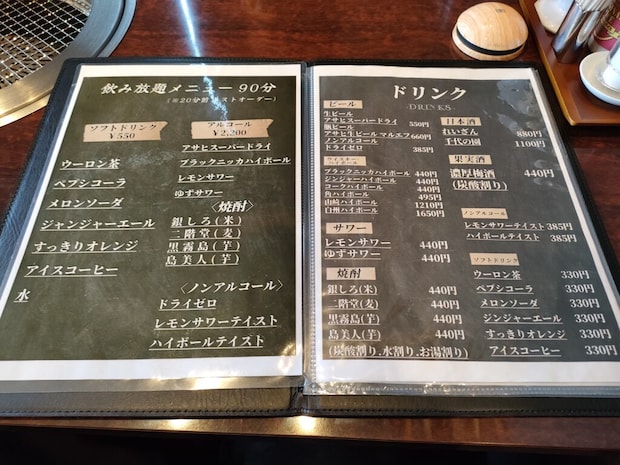 飲み放題メニュー 90分
(※20分前ラストオーダー)
ソフトドリンク
¥550
ウーロン茶
ペプシコーラ
メロンソーダ
ジャンジャーエール
すっきりオレンジ
アイスコーヒー
水
アルコール
¥2,200
アサヒスーパードライ
ブラックニッカハイボール
レモンサワー
ゆずサワー
〈焼酎〉
銀しろ(米)
二階堂(麦)
黒霧島(芋)
島美人(芋)
〈ノンアルコール〉
ドライゼロ
レモンサワーテイスト
ハイボールテイスト
ドリンク
-DRINKS-
ビール
生ビール
アサヒスーパードライ 550円
瓶ビール
アサヒ生ビール マルエフ 660円
ノンアルコール
ドライゼロ 385円
ウイスキー・ハイボール
ブラックニッカハイボール 440円
ジンジャーハイボール 440円
コークハイボール 440円
角ハイボール 495円
山崎ハイボール 1210円
白州ハイボール 1650円
サワー
レモンサワー 440円
ゆずサワー 440円
焼酎
銀しろ(米) 440円
二階堂(麦) 440円
黒霧島(芋) 440円
島美人(芋) 440円
(炭酸割り.水割り.お湯割り)
日本酒
れいざん 880円
千代の園 1100円
果実酒
濃厚梅酒 440円
(炭酸割り)
ノンアルコール
レモンサワーテイスト 385円
ハイボールテイスト 385円
ソフトドリンク
ウーロン茶 330円
ペプシコーラ 330円
メロンソーダ 330円
ジンジャーエール 330円
すっきりオレンジ 330円
アイスコーヒー 330円